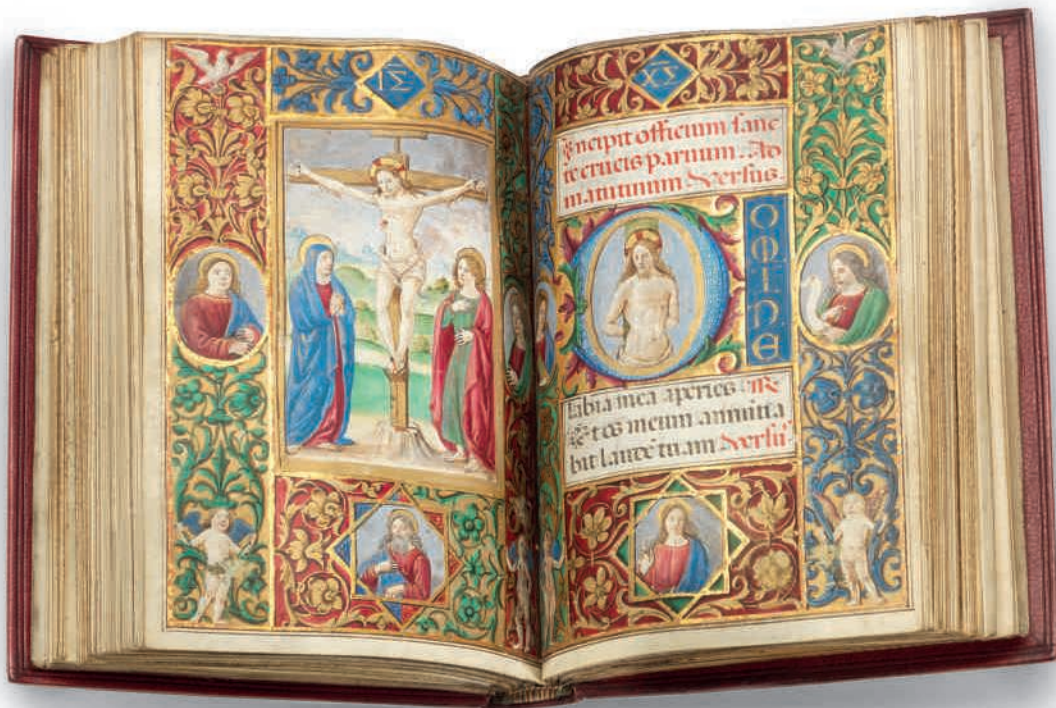 IΣ
XY
Incipit officium sanc
te crucis paruum. Ad
matutinum Versus.
D
O
M
I
N
E
labia mea aperies
Et os meum annūtia
bit laudē tuam Versu